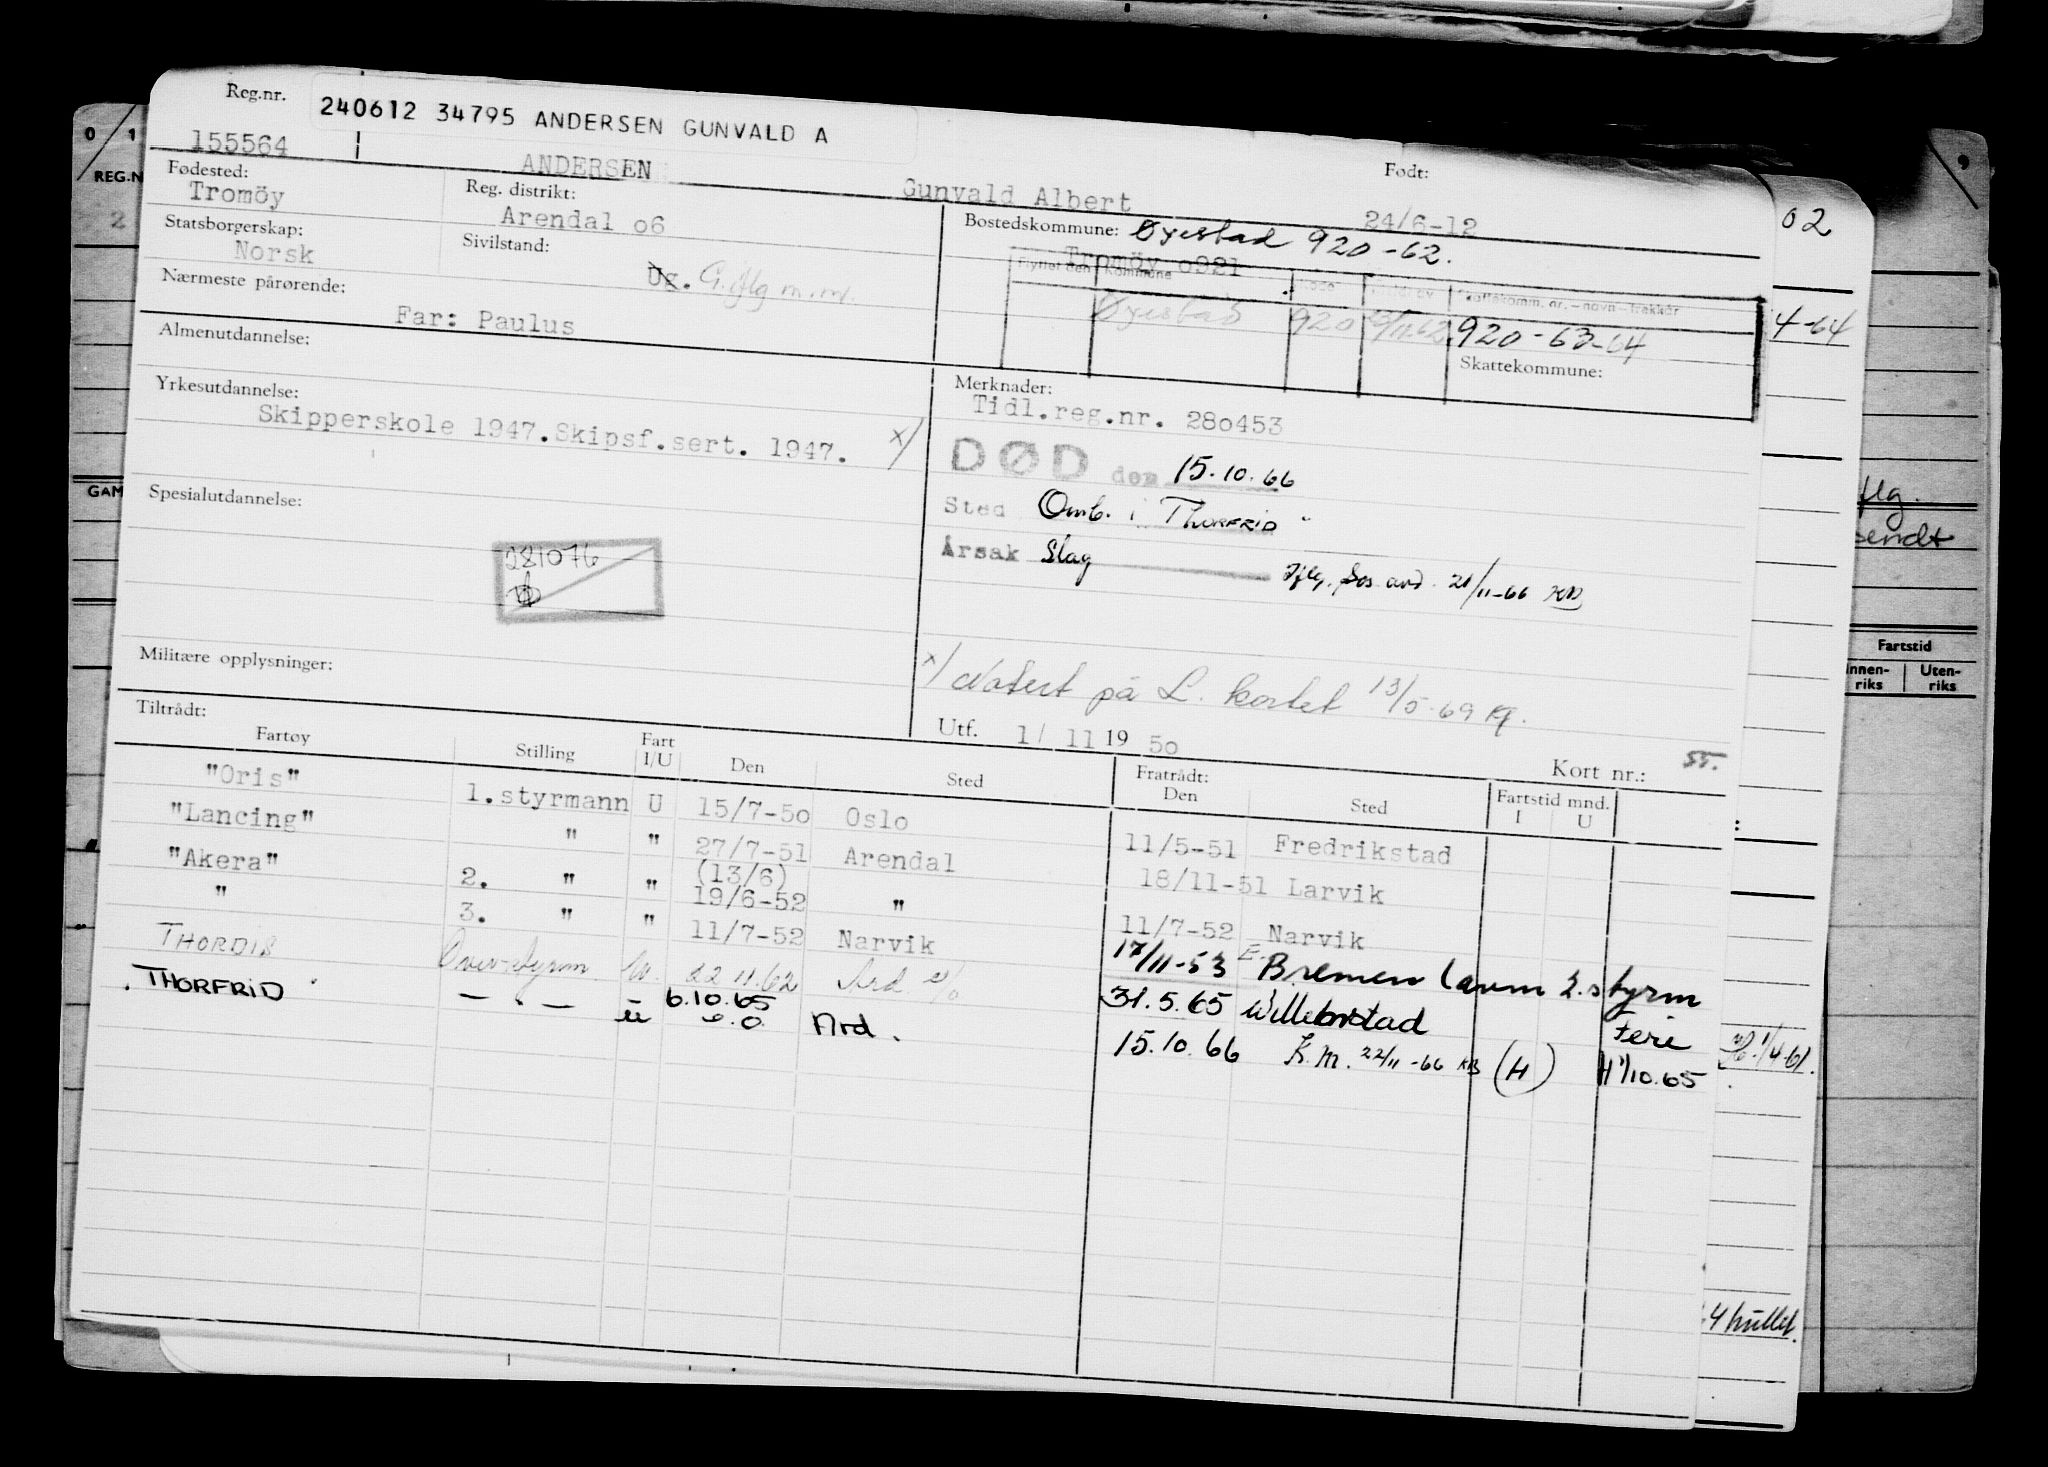 Reg.nr.
240612 34795 ANDERSEN GUNVALD A
155564
ANDERSEN
Gunvald Albert
Født:
24/6-12
Fødested:
Tromöy
Reg. distrikt:
Arendal o6
Bostedskommune: Øyestad 920-62.
Tromöy o921
Statsborgerskap:
Norsk
Sivilstand:
Ug. G.
Flyttet den Kommune
Kode
Skattekomm. nr. - navn - trekkår
Øyestad 920
920-63-64
Skattekommune:
Nærmeste pårørende:
Far: Paulus
Almenutdannelse:
Yrkesutdannelse:
Skipperskole 1947. Skipsf.sert. 1947. x/
Merknader:
Tidl.reg.nr. 28o453
DØD den 15.10.66
Sted Omb. i "THORFRID"
Årsak Slag
Iflg. Sos. avd. 21/11-66 KB
Spesialutdannelse:
281076
Militære opplysninger:
x/ Notert på L. kortet 13/5-69
Utf. 1/ 11 19 5o
Kort nr.: 55.
Tiltrådt:
Fartøy
Stilling
Fart I/U
Den
Sted
Fratrådt:
Den
Sted
Fartstid mnd.
I U
"Oris" 1.styrmann U 15/7-5o Oslo 11/5-51 Fredrikstad
"Lancing" " " 27/7-51 Arendal 18/11-51 Larvik
(13/6)
"Akera" 2. " " 19/6-52 " 11/7-52 Narvik
" 3. " " 11/7-52 Narvik 17/11-53 Bremen (avm 2. styrm
THORDIS Overstyrm U. 22 11.62 Ard 31.5.65 Willebrstad Ferie
THORFRID — . — 6.10.65 Ard. 15.10.66 K.M. 22/11-66 KB (H) H 1/10.65
0 1
REG.N
2
GAM
9
02
4-64
flg.
sendt
Fartstid
Innenriks
Utenriks
1/4-61.
4 hullet.